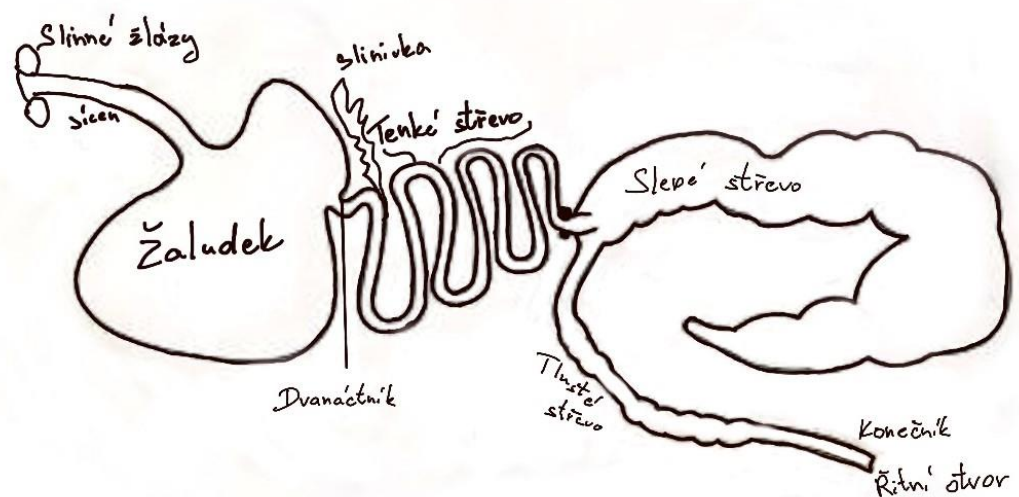 Slinné žlázy
jícen
slinivka
Tenké střevo
Žaludek
Slepé střevo
Dvanáctník
Tlusté
střevo
Konečník
Řitní otvor